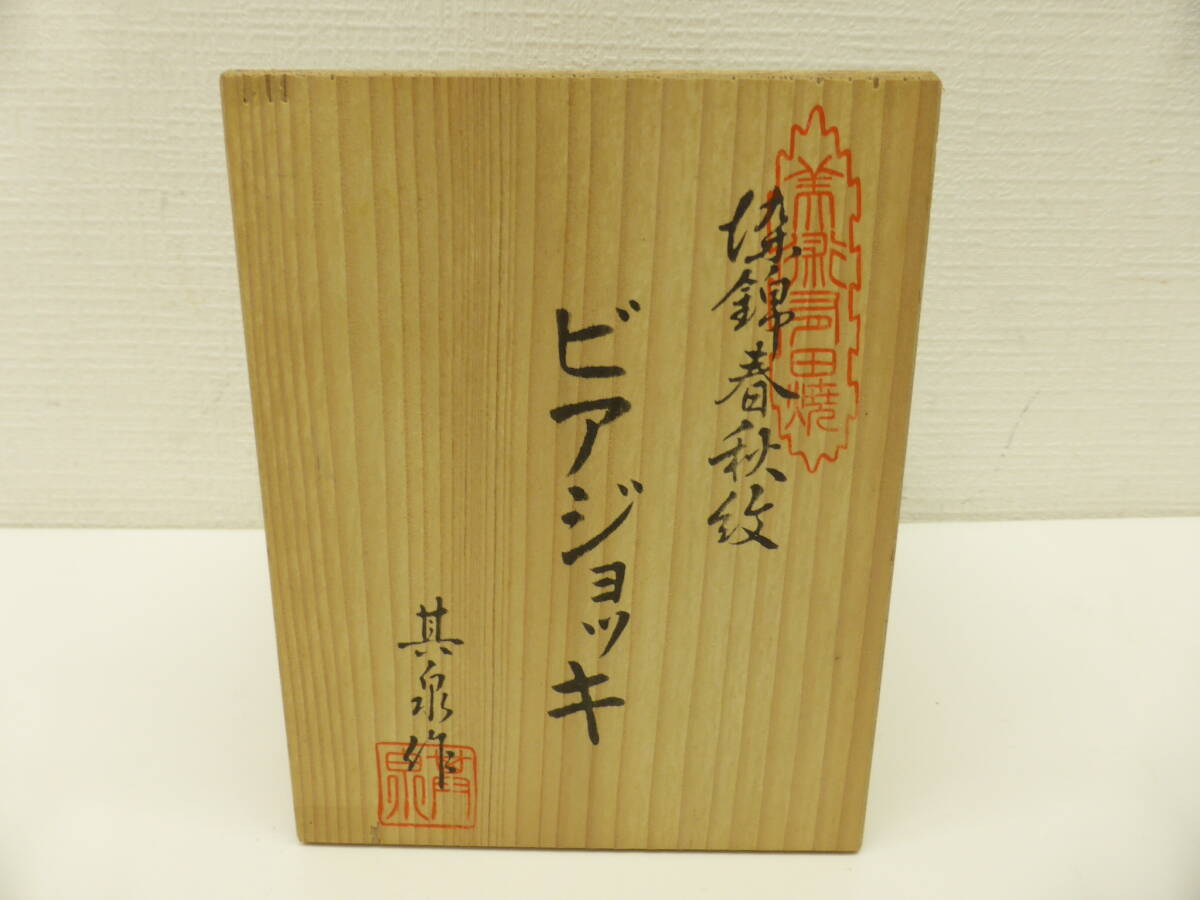 美術有田焼
染錦春秋紋
ビアジョッキ
其泉作
其泉